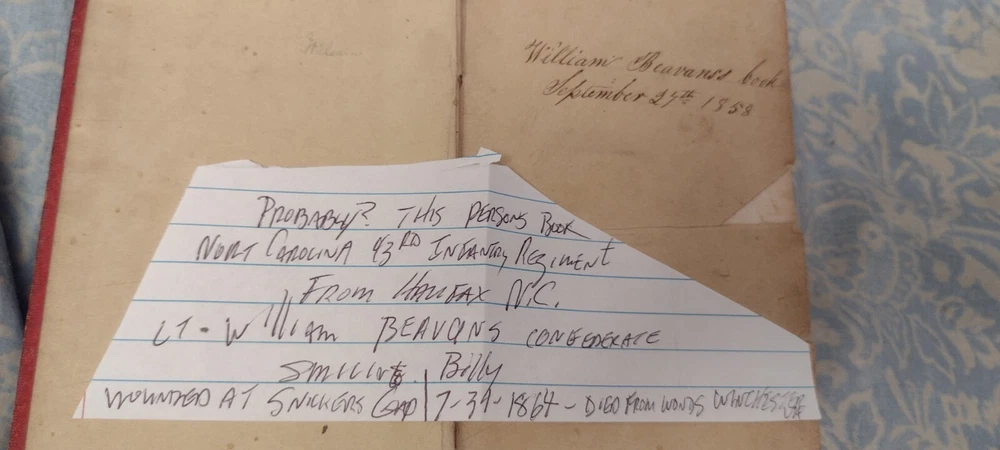 William Beavans's book
September 27th 1858
PROBABLY? THIS PERSONS BOOK
NORT CAROLINA 43RD INFANTRY REGIMENT
FROM HALIFAX N.C.
LT. William BEAVANS CONFEDERATE
SMILING Billy
WOUNDED AT SNICKERS GAP 7-31-1864 - DIED FROM WONDS WINCHESTER VA